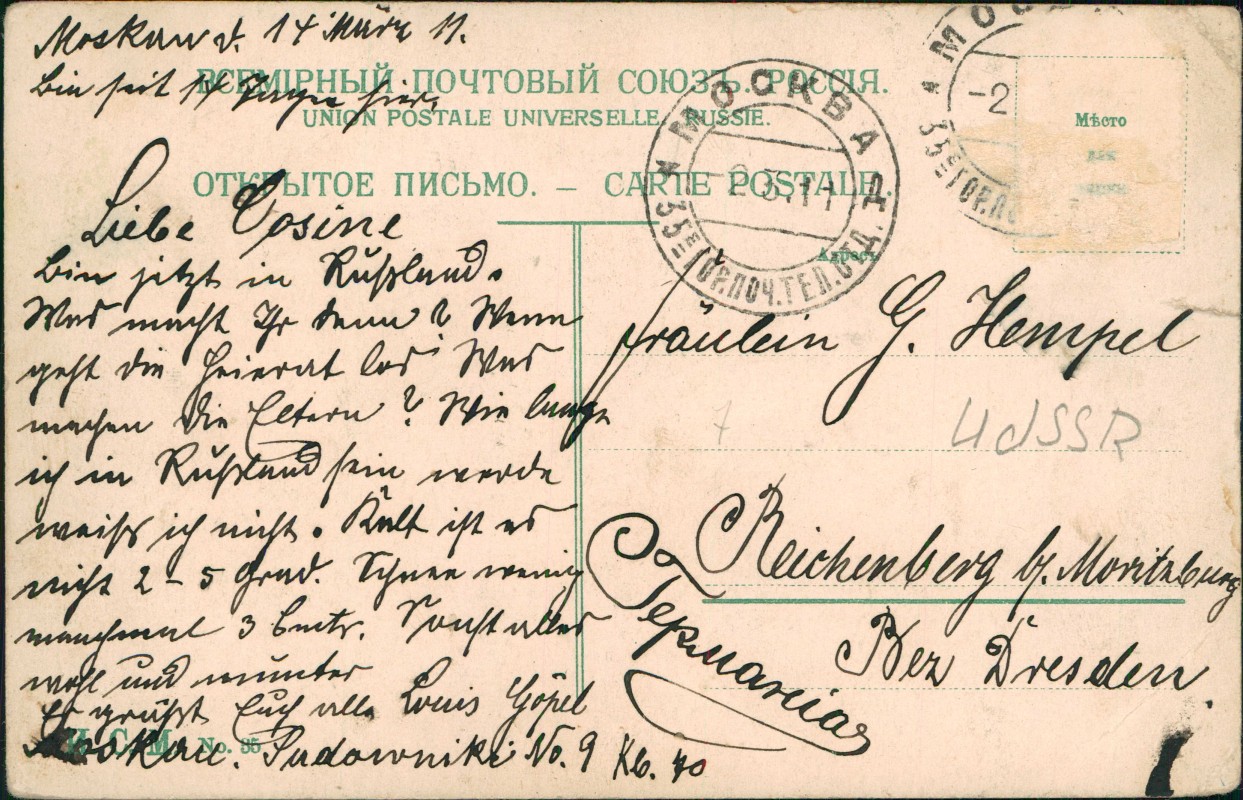 Moskau d. 14 März 11.
Bin seit 14 Tagen hier.
ВСЕМІРНЫЙ ПОЧТОВЫЙ СОЮЗЪ. РОССІЯ.
UNION POSTALE UNIVERSELLE. RUSSIE.
ОТКРЫТОЕ ПИСЬМО. – CARTE POSTALE.
Liebe Cosine
Bin jetzt in Rußland.
Was macht Ihr denn? Wann
geht die Heierat los? Was
machen die Eltern? Wie lange
ich in Rußland sein werde
weiss ich nicht. Kalt ist es
nicht 2 – 5 Grad. Schnee wenig
manchmal 3 Cmtr. Sonst alles
wohl und munter
Es grüßt Euch alle Louis Göpel
Moskau. Sadowniki No. 9 Кв. 70
No. 35
МОСКВА
-2 3.11
35Е ГОР.ПОЧ.ТЕЛ.ОТД.
МОСКВА
-2
35Е ГОР.ПО
Мѣсто
для
Адресъ
Fräulein G. Hempel
7
UdSSR
Reichenberg b/. Moritzburg
Bez Dresden.
Германія